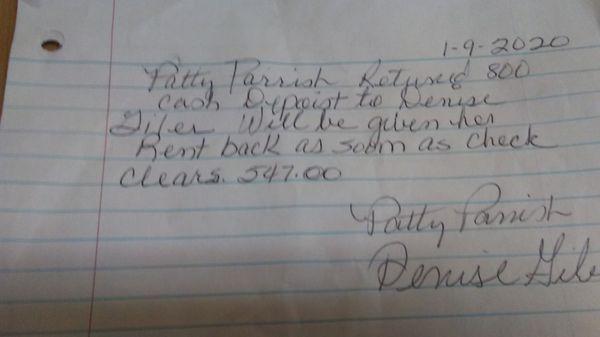 1-9-2020
Patty Parrish Retused 800
Cash Dypoist to Denise
Giler Will be given her
Rent back as soom as check
Clears. 547.00
Patty Parrish
Denise Gile